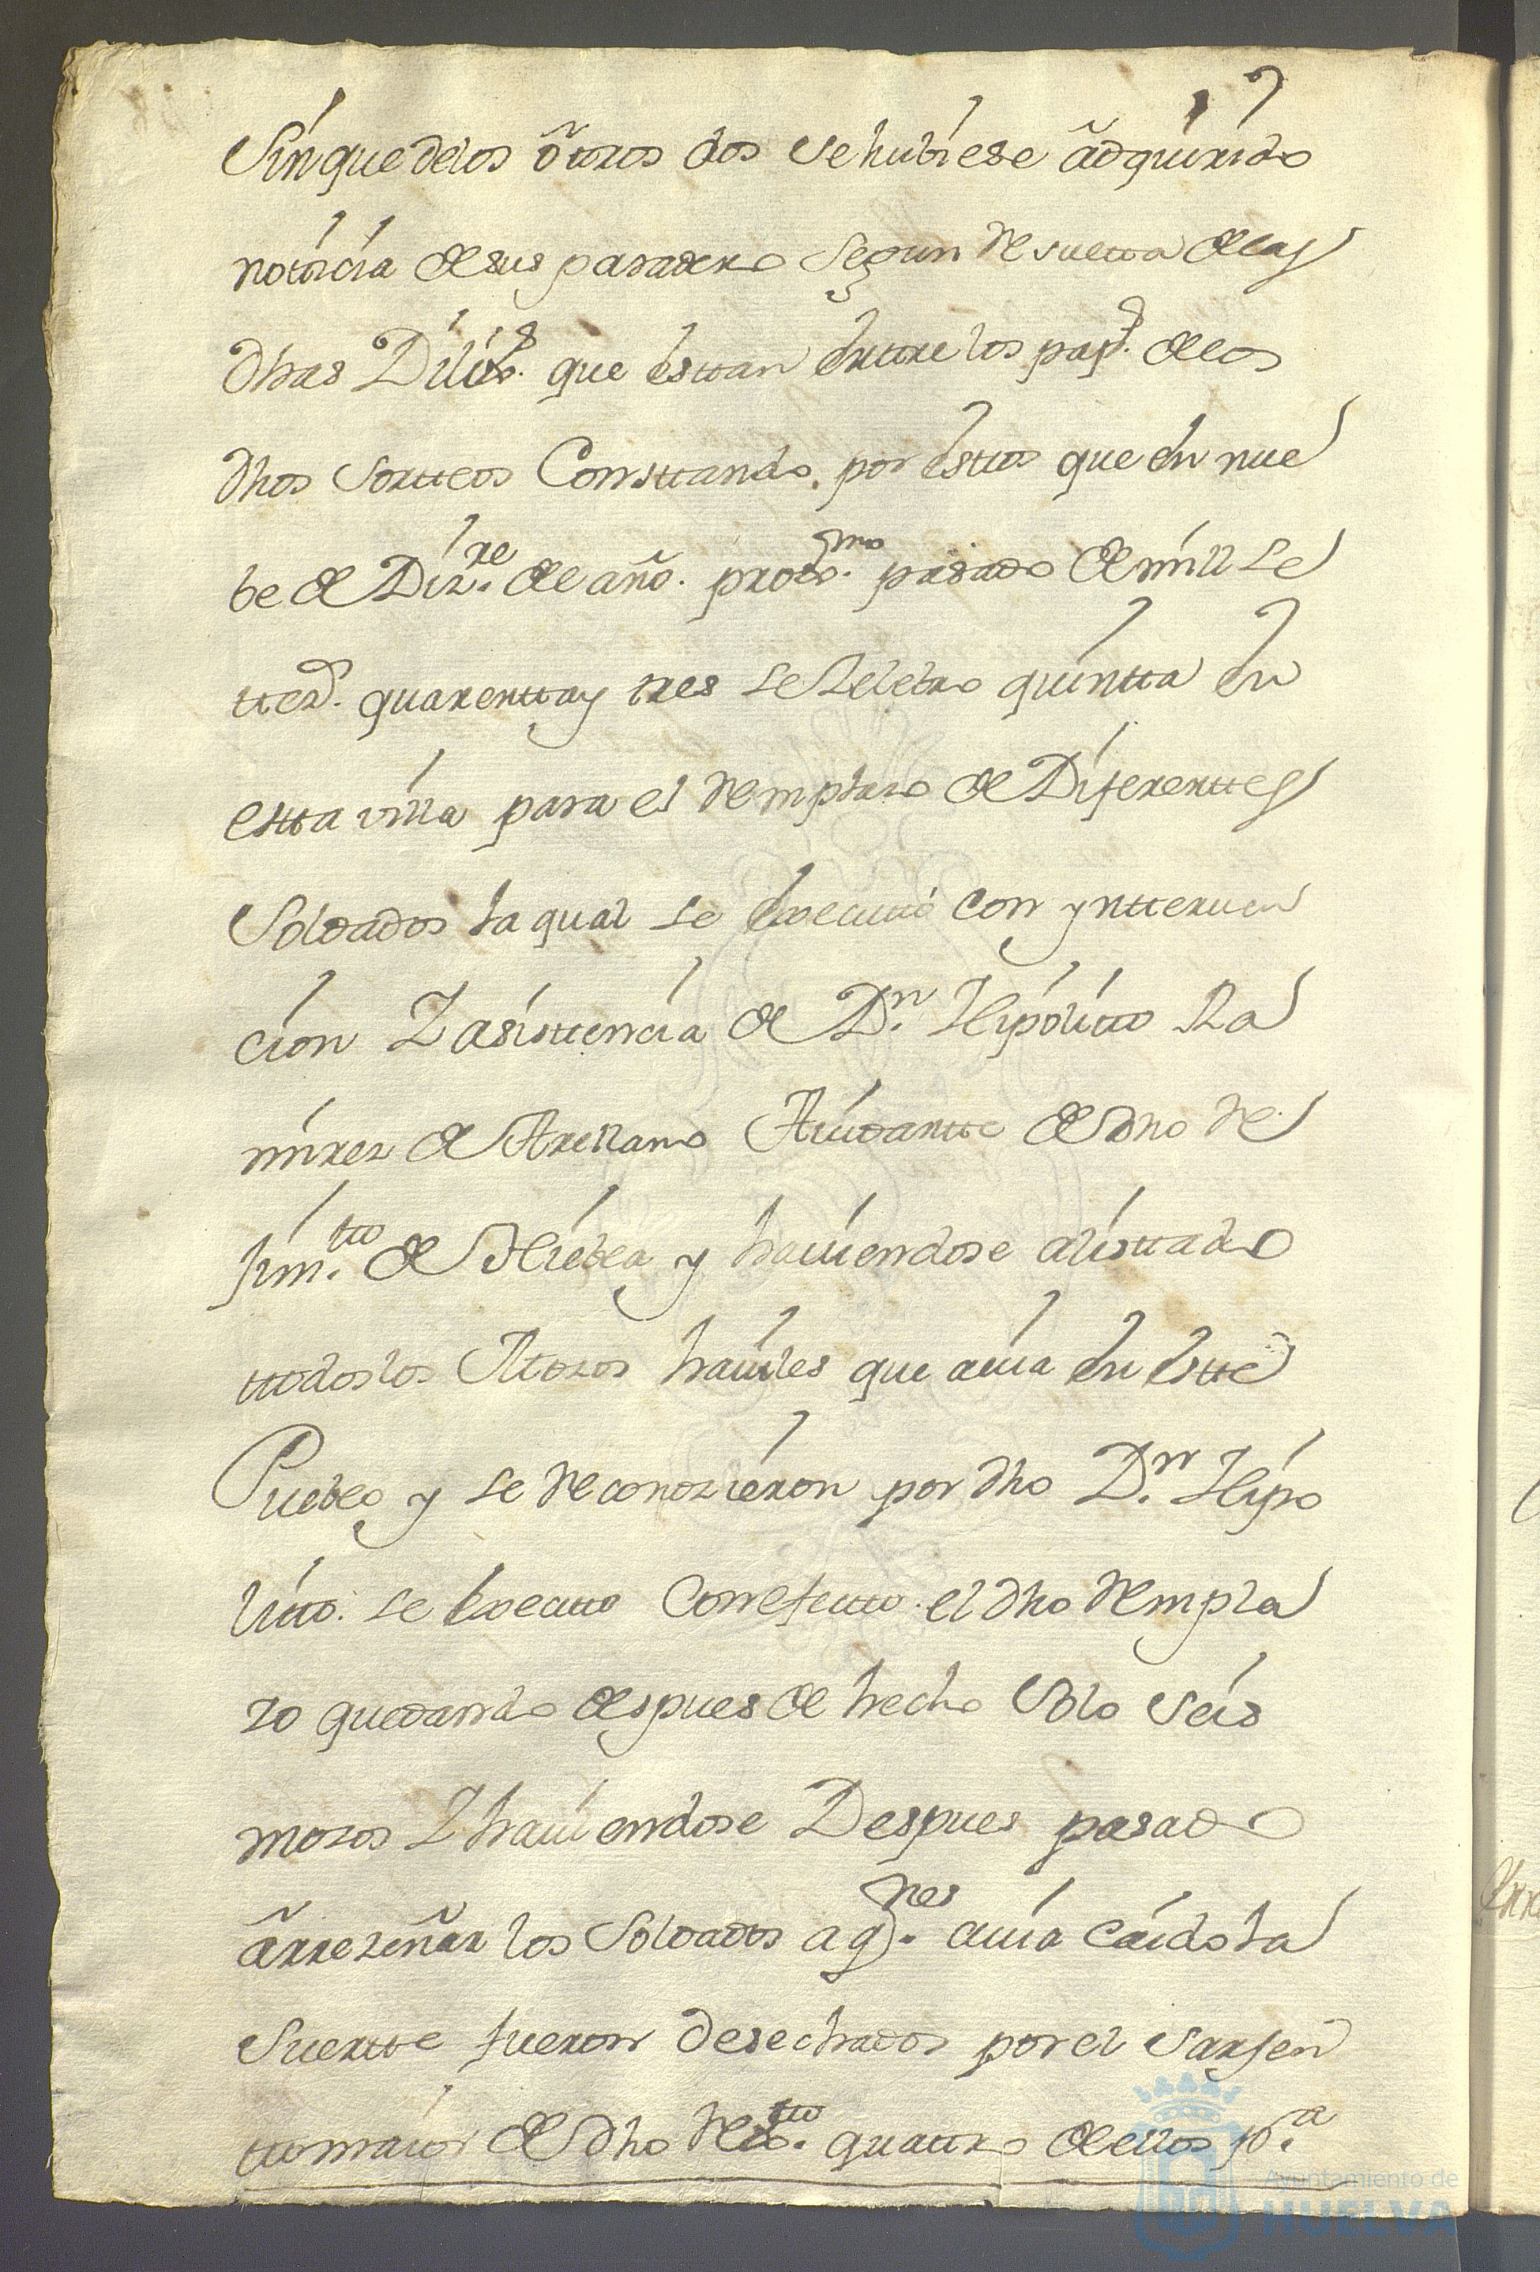 Sin que de los otros dos se hubiese adquirido
noticia de sus paradero segun resuelta de las
dhas Dilix.s que esttan enttre los pap.s de los
dhos sortteos Consttando por esttos que en nue
be de Diz.re de año prox.mo pasado de mill se
ttez.s quarentta y tres se Zelebro quintta en
estta villa para el Remplazo de Diferenttes
Soldados la qual se executtó con yntterven
cion Y asisttencia de D.n Hipolitto Ra
mirez de Arellano Aiudantte de dho Re
jim.tto de Niebla y haviendose alisttado
ttodos los Mozos haviles que avia en estte
Pueblo y se Reconozieron por dho D.n Hipo
litto se executto Con efectto el dho Rempla
zo quedando despues de hecho Solo seis
mozos Y haviendose Despues pasado
a rrezeñar los Soldados a q.nes avia caido la
Suertte fueron desechados por el Sarjen
tto maior de dho Rex.tto quattro de ellos p.a
Ayuntamiento de
HUELVA